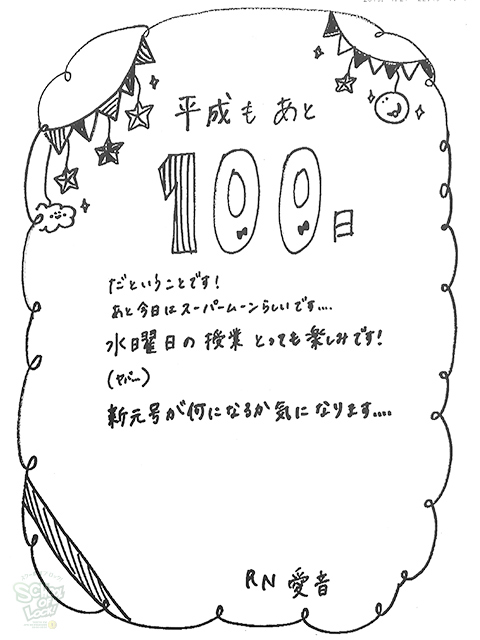 平成も あと
100日
だということです!
あと今日はスーパームーンらしいです....
水曜日の授業とっても楽しみです!
新元号が何になるか気になります....
RN 愛音
SCHOOL OF LOCK!